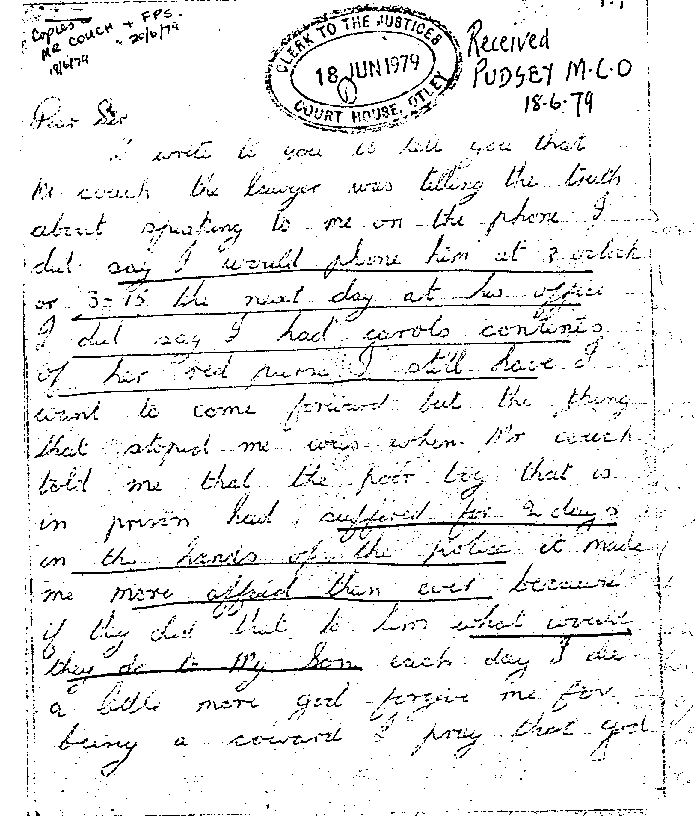 Copies
Mr Couch + FPS.
19/6/79 " 20/6/79
CLERK TO THE JUSTICES
18 JUN 1979
COURT HOUSE, OTLEY
Received
PUDSEY M.C.O
18-6-79
Dear Sir
I write to you to tell you that
Mr couch the lawyer was telling the truth
about speaking to me on the phone I
did say I would phone him at 3 oclock
or 3-15 the next day at his office
I did say I had carols contents
of her red purse I still have I
want to come forward but the thing
that stoped me was when Mr couch
told me that the poor boy that is
in prison had suffered for 2 days
in the hands of the police it made
me more affried than ever because
if they did that to him what would
they do to My Son each day I die
a little more god forgive me for
being a coward I pray that god